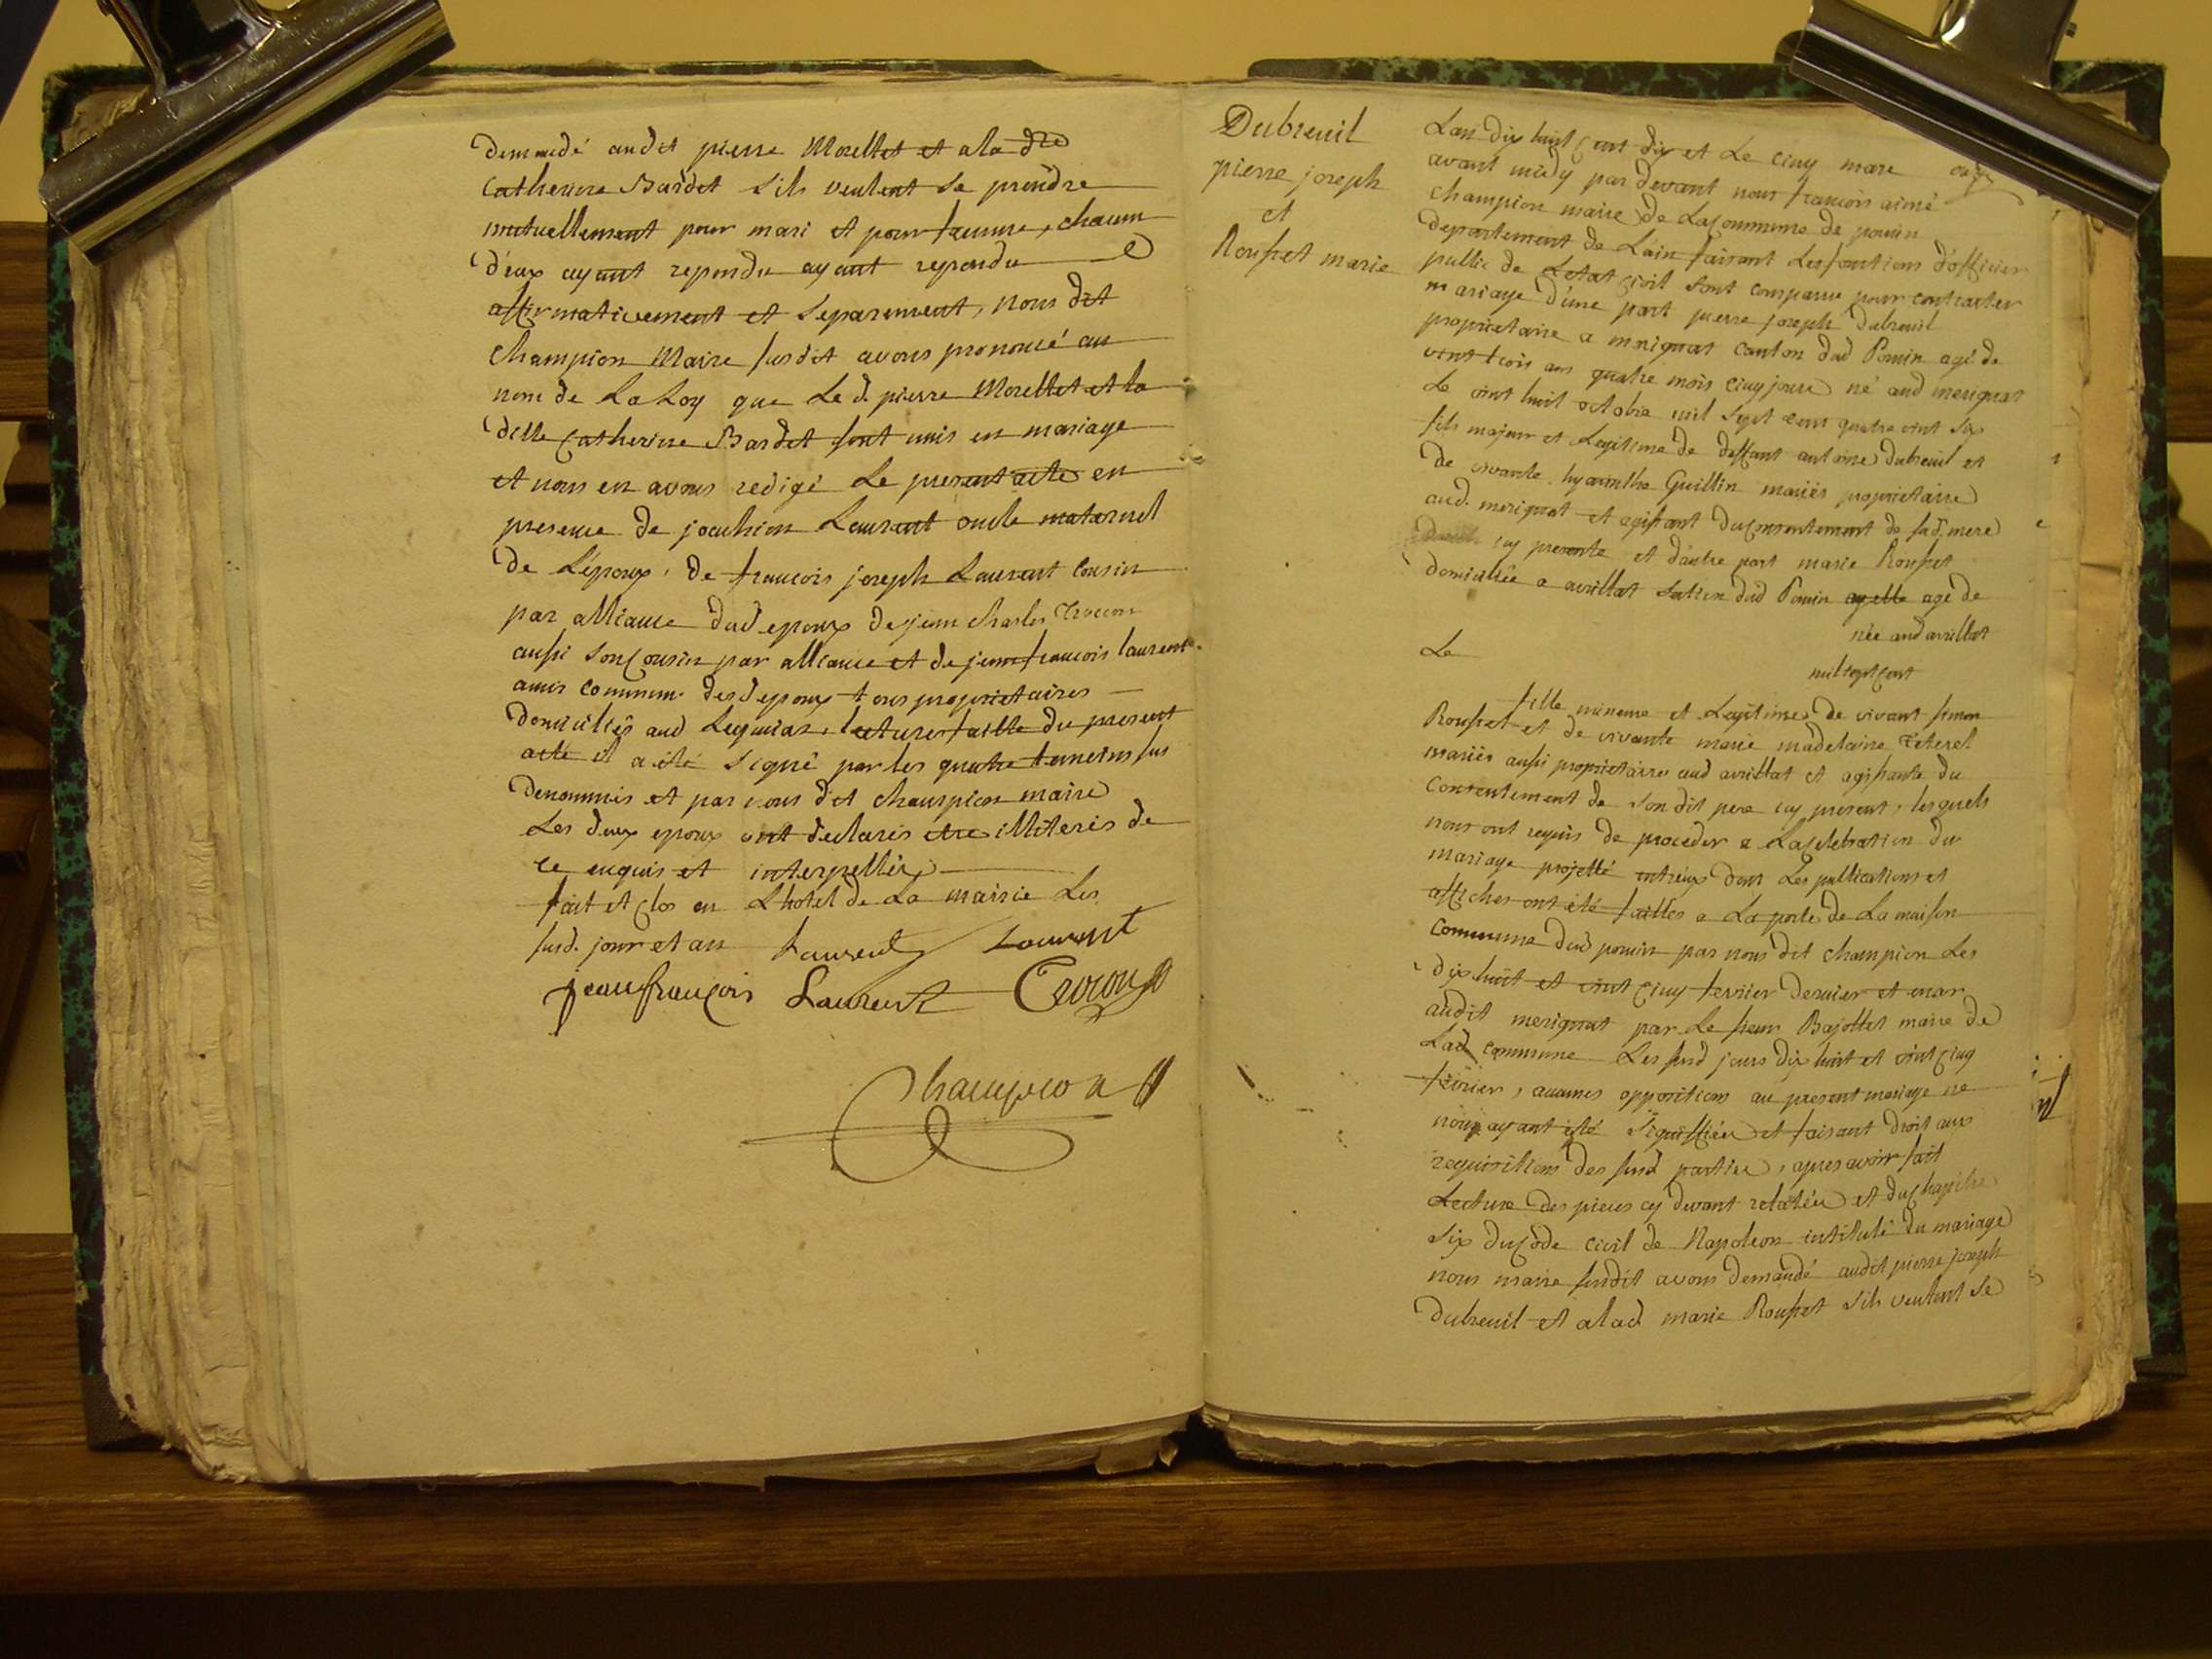 demandé audit pierre Morellet et ala dte
Catherine Bardet s'ils veulent se prendre
mutuellement pour mari et pour femme, chacun
d'eux ayant repondu ayant repondu
affirmativement et separement, nous dit
Champion Maire susdit avons prononcé au
nom de La Loy que Le d. pierre Morellet et la
dite Catherine Bardet sont unis en mariage
et nous en avons redigé Le present acte en
presence de joachim Laurent oncle maternel
de L'époux, de francois joseph Laurent Cousin
par alliance dud epoux de jean charles
aussi son Cousin par alliance et de jean francois laurent
amis commun des d epoux tous proprietaires
domiciliés aud Leymiat, lecture faitte du present
acte il a été signé par les quatre temoins sus
denommés et par nous dit champion maire
Les deux epoux ont declarés etre illiterés de
ce enquis et interpellés
fait et clos en L'hotel de La mairie Les
susd. jour et an Laurent Laurent
jean francois Laurent
Champion
Dubreuil
pierre joseph
et
Rousset marie
L'an dix huit cent dix et Le cinq mars
avant midy par devant nous francois aimé
Champion maire de La Commune de poncin
departement de L'ain faisant Les fonctions d'officier
public de L'etat civil sont comparus pour contracter
mariage d'une part pierre joseph dubreuil
proprietaire a merignat canton dud Poncin agé de
vint trois ans quatre mois cinq jours né aud merignat
Le vint huit octobre mil sept cens quatre vint six
fils majeur et Legitime de deffunt antoine dubreuil et
de vivante hyacinthe Guillin mariés proprietaire
aud. merignat et agissant du consentement de sad. mere
icy presente et d'autre part marie Rousset
domiciliée a avrillat section dud Poncin agé de
née aud avrillat
Le
mil sept cent
fille mineure et Legitime de vivant simon
Rousset et de vivante marie madelaine
mariés aussi proprietaires aud avrillat et agissante du
Consentement de son dit pere icy present, lesquels
nous ont requis de proceder a La Celebration du
mariage projetté entreux dont Les publications et
affiches ont été faittes a La porte de La maison
Commune dud poncin par nous dit champion Les
dix huit et vint cinq fevrier dernier et encor
audit merignat par Le sieur Bajollet maire de
Lad commune Les susd jours dix huit et vint cinq
fevrier, aucunes oppositions au present mariage ne
nous ayant eté signiffiée et faisant droit aux
requisitions des susd parties, apres avoir fait
Lecture des pieces cy devant relatées et du chapitre
six du Code civil de Napoleon intitulé du mariage
nous maire susdit avons demandé audit pierre joseph
Dubreuil et alad marie Rousset s'ils veulent se